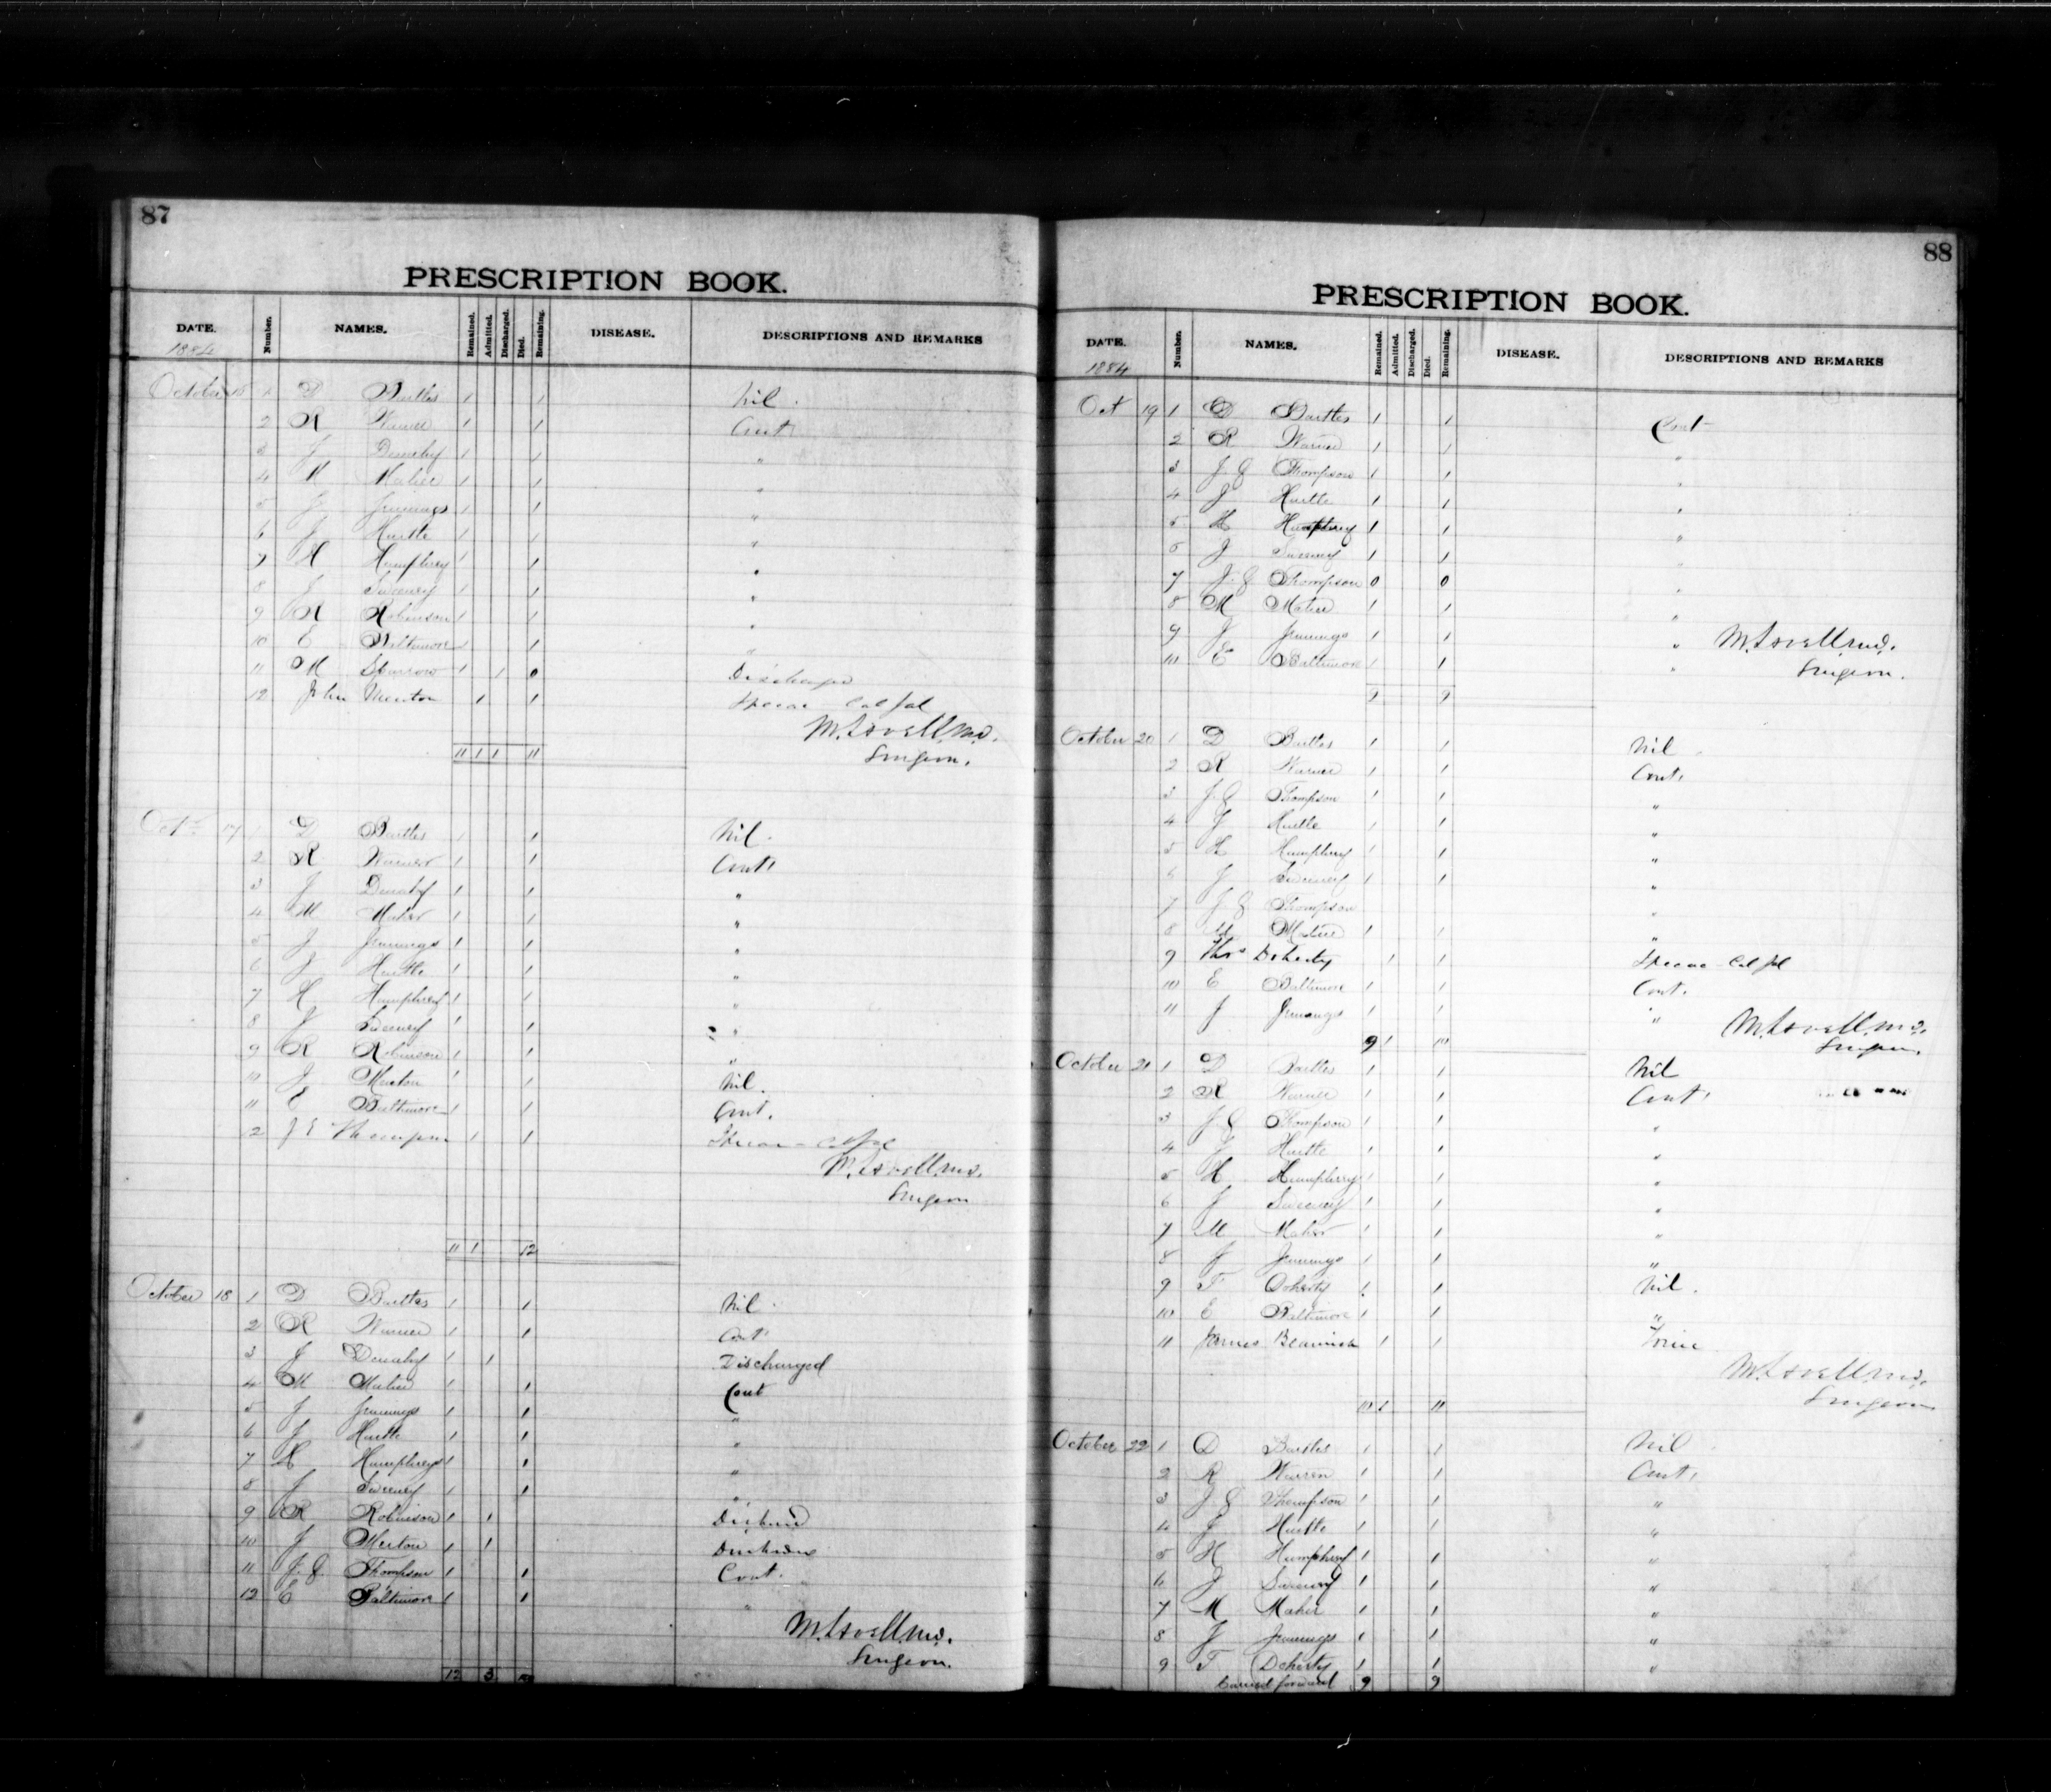 87
PRESCRIPTION BOOK.
DATE. Number. NAMES. Remained. Admitted. Discharged. Died. Remaining. DISEASE. DESCRIPTIONS AND REMARKS
1884
October 1 D Bartles 1 1 Nil.
2 R Warner 1 1 Cont
3 J 1 1 "
4 M Maher 1 1 "
5 J Jennings 1 1 "
6 J Hurtle 1 1 "
7 H Humphrey 1 1 "
8 J Sweeney 1 1 "
9 R Robinson 1 1 "
10 E Baltimore 1 1 "
11 M Sparrow 1 1 0 Discharged
12 John Merton 1 1 Specac Cal Jal
M. Lovell M.D.
Surgeon.
11 1 1 11
Oct 17 1 D Bartles 1 1 Nil.
2 R Warner 1 1 Cont
3 J Denahy 1 1 "
4 M Maher 1 1 "
5 J Jennings 1 1 "
6 J Hurtle 1 1 "
7 H Humphrey 1 1 "
8 J Sweeney 1 1 "
9 R Robinson 1 1 "
10 J Merton 1 1 Nil.
11 E Baltimore 1 1 Cont.
2 J E Thompson 1 1 Cal Jal
M. Lovell M.D.
Surgeon
11 1 12
October 18 1 D Bartles 1 1 Nil
2 R Warner 1 1 Cont
3 J Denahy 1 1 Discharged
4 M Maher 1 1 Cont
5 J Jennings 1 1 "
6 J Hurtle 1 1 "
7 H Humphreys 1 1 "
8 J Sweeney 1 1 "
9 R Robinson 1 1
10 J Merton 1 1
11 J. E. Thompson 1 1 Cont.
12 E Baltimore 1 1 "
M. Lovell M.D.
Surgeon.
12 3
88
PRESCRIPTION BOOK.
DATE. Number. NAMES. Remained. Admitted. Discharged. Died. Remaining. DISEASE. DESCRIPTIONS AND REMARKS
1884
Oct 19 1 D Bartles 1 1 Cont
2 R Warner 1 1 "
3 J E Thompson 1 1 "
4 J Hurtle 1 1 "
5 H Humphrey 1 1 "
6 J Sweeney 1 1 "
7 J. E Thompson 0 0 "
8 M Maher 1 1 "
9 J Jennings 1 1 " M. Lovell M.D.
10 E Baltimore 1 1 " Surgeon.
9 9
October 20 1 D Bartles 1 1 Nil
2 R Warner 1 1 Cont.
3 J. E Thompson 1 1 "
4 J Hurtle 1 1 "
5 H Humphrey 1 1 "
6 J Sweeney 1 1 "
7 J E Thompson "
8 M Maher 1 1 "
9 Thos Doherty 1 1 Specac Cal Jal
10 E Baltimore 1 1 Cont.
11 J Jennings 1 1 " M. Lovell M.D.
9 1 10 Surgeon.
October 21 1 D Bartles 1 1 Nil
2 R Warner 1 1 Cont.
3 J E Thompson 1 1 "
4 J Hurtle 1 1 "
5 H Humphrey 1 1 "
6 J Sweeney 1 1 "
7 M Maher 1 1 "
8 J Jennings 1 1 "
9 T Doherty 1 1 Nil.
10 E Baltimore 1 1 "
11 James Beamish 1 1
M. Lovell M.D.
Surgeon
10 1 11
October 22 1 D Bartles 1 1 Nil
2 R Warren 1 1 Cont.
3 J E Thompson 1 1 "
4 J Hurtle 1 1 "
5 H Humphrey 1 1 "
6 J Sweeney 1 1 "
7 M Maher 1 1 "
8 J Jennings 1 1 "
9 T Doherty 1 1 "
Carried forward 9 9